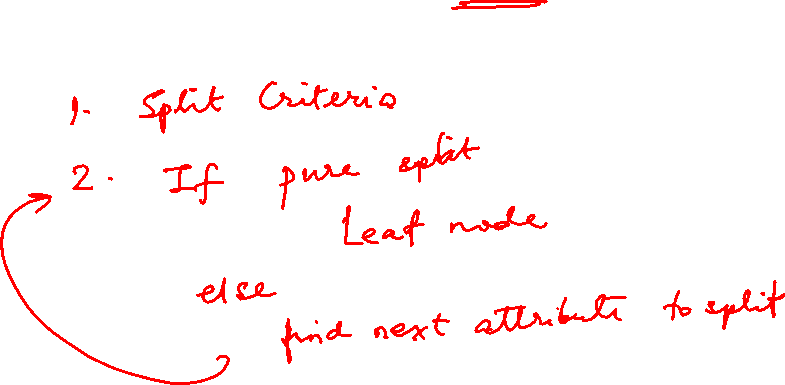 1. Split Criteria
2. If pure split
Leaf node
else
find next attribute to split